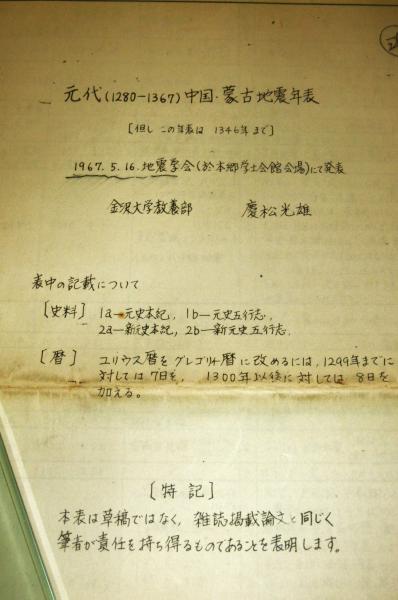 元代(1280-1367)中国・蒙古地震年表
[但し この年表は 1346年まで]
1967.5.16.地震学会(於本郷学士会館会場)にて発表
金沢大学教養部 慶松光雄
表中の記載について
[史料] 1a—元史本紀, 1b—元史五行志,
2a—新元史本紀, 2b—新元史五行志,
[暦] ユリウス暦をグレゴリオ暦に改めるには,1299年までに
対しては7日を, 1300年以後に対しては 8日を
加える。
[特記]
本表は草稿ではなく, 雑誌掲載論文と同じく
筆者が責任を持ち得るものであることを表明します。